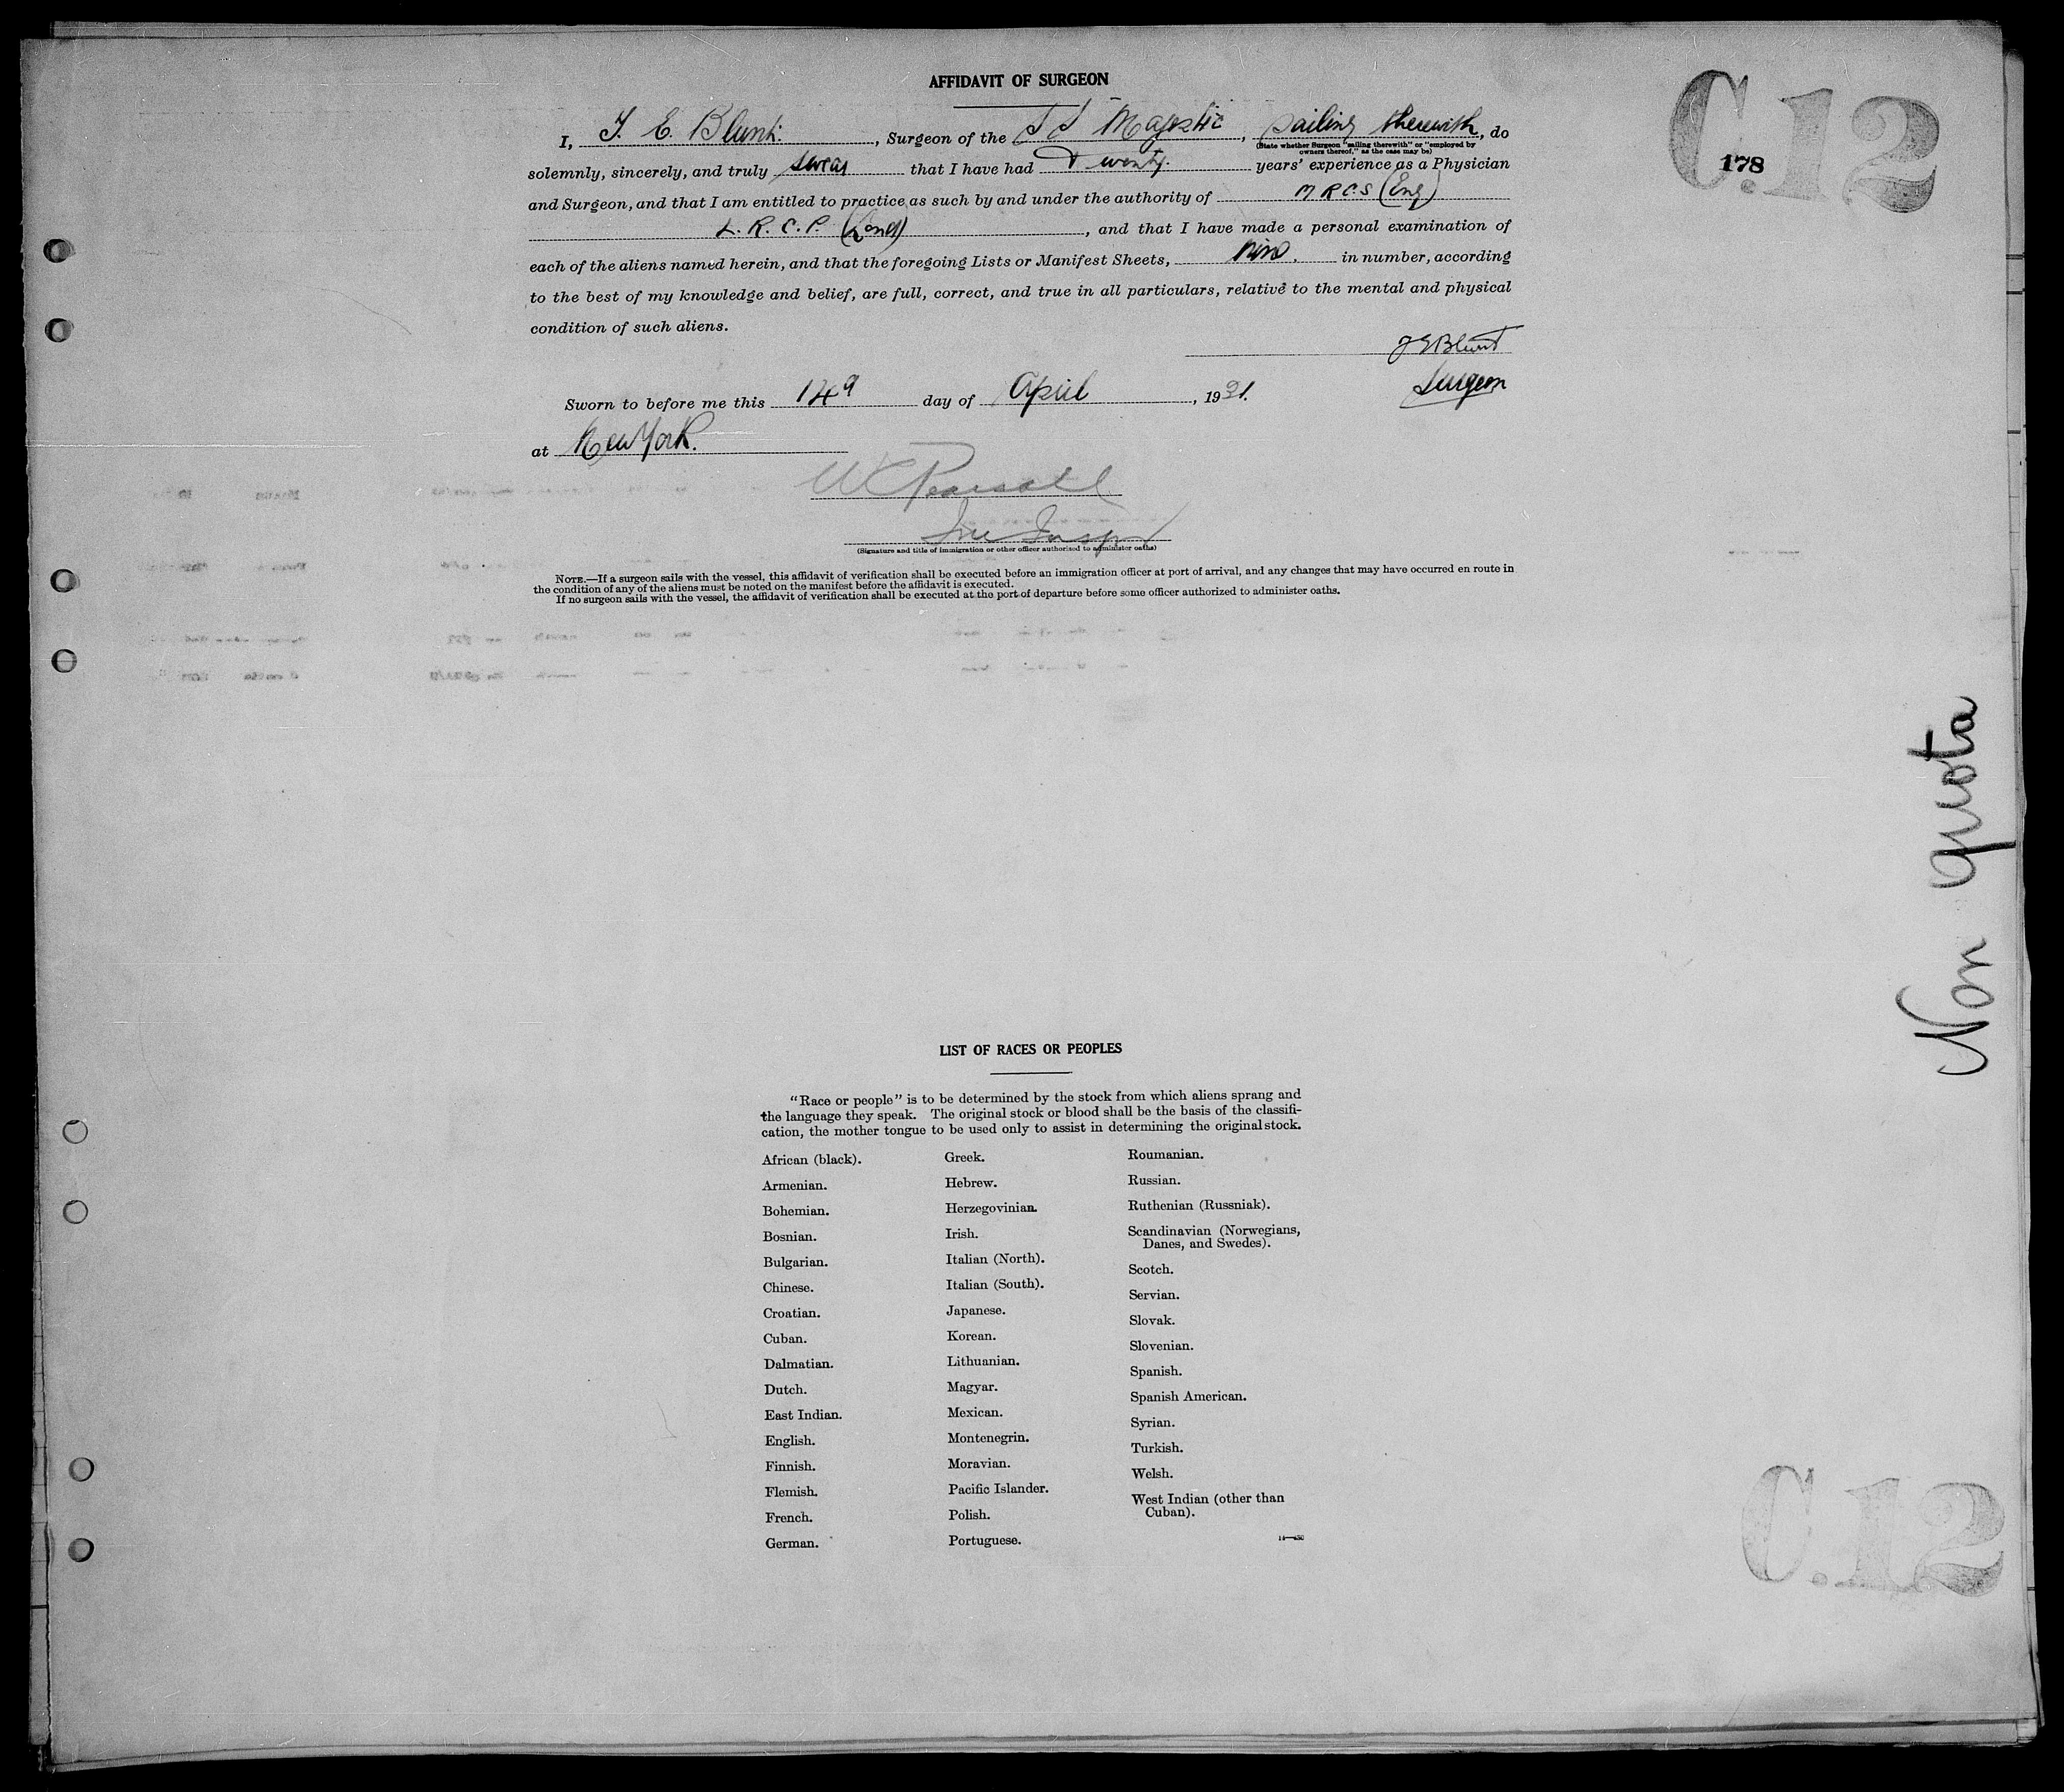 C.12
178
AFFIDAVIT OF SURGEON
I, J. E. Blunt. , Surgeon of the SS Majestic , sailing therewith , do
(State whether Surgeon "sailing therewith" or "employed by
owners thereof," as the case may be)
solemnly, sincerely, and truly swear that I have had Twenty. years' experience as a Physician
and Surgeon, and that I am entitled to practice as such by and under the authority of M R C S (Eng)
L. R. C. P. (Lond) , and that I have made a personal examination of
each of the aliens named herein, and that the foregoing Lists or Manifest Sheets, nine. in number, according
to the best of my knowledge and belief, are full, correct, and true in all particulars, relative to the mental and physical
condition of such aliens.
J E Blunt
Surgeon
Sworn to before me this 14 day of April , 1931.
at New York.
W C Pearsall
Imm Inspr
(Signature and title of immigration or other officer authorized to administer oaths)
NOTE.—If a surgeon sails with the vessel, this affidavit of verification shall be executed before an immigration officer at port of arrival, and any changes that may have occurred en route in
the condition of any of the aliens must be noted on the manifest before the affidavit is executed.
If no surgeon sails with the vessel, the affidavit of verification shall be executed at the port of departure before some officer authorized to administer oaths.
Non quota
LIST OF RACES OR PEOPLES
"Race or people" is to be determined by the stock from which aliens sprang and
the language they speak. The original stock or blood shall be the basis of the classifi-
cation, the mother tongue to be used only to assist in determining the original stock.
African (black).
Armenian.
Bohemian.
Bosnian.
Bulgarian.
Chinese.
Croatian.
Cuban.
Dalmatian.
Dutch.
East Indian.
English.
Finnish.
Flemish.
French.
German.
Greek.
Hebrew.
Herzegovinian.
Irish.
Italian (North).
Italian (South).
Japanese.
Korean.
Lithuanian.
Magyar.
Mexican.
Montenegrin.
Moravian.
Pacific Islander.
Polish.
Portuguese.
Roumanian.
Russian.
Ruthenian (Russniak).
Scandinavian (Norwegians,
Danes, and Swedes).
Scotch.
Servian.
Slovak.
Slovenian.
Spanish.
Spanish American.
Syrian.
Turkish.
Welsh.
West Indian (other than
Cuban).
C.12